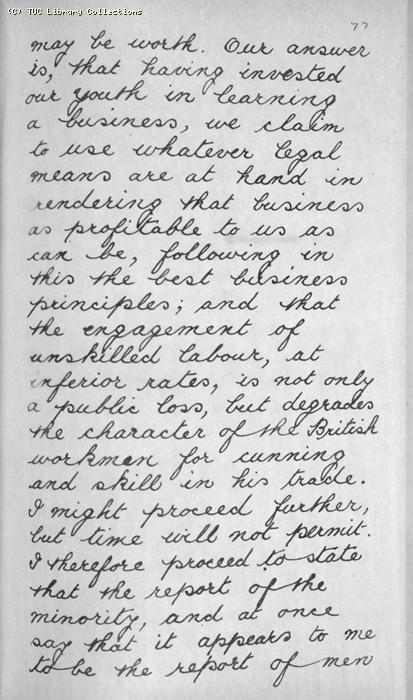 (C) TUC Library Collections
77
may be worth. Our answer
is, that having invested
our youth in learning
a business, we claim
to use whatever legal
means are at hand in
rendering that business
as profitable to us as
can be, following in
this the best business
principles; and that
the engagement of
unskilled labour, at
inferior rates, is not only
a public loss, but degrades
the character of the British
workmen for cunning
and skill in his trade.
I might proceed further,
but time will not permit.
I therefore proceed to state
that the report of the
minority, and at once
say that it appears to me
to be the report of men